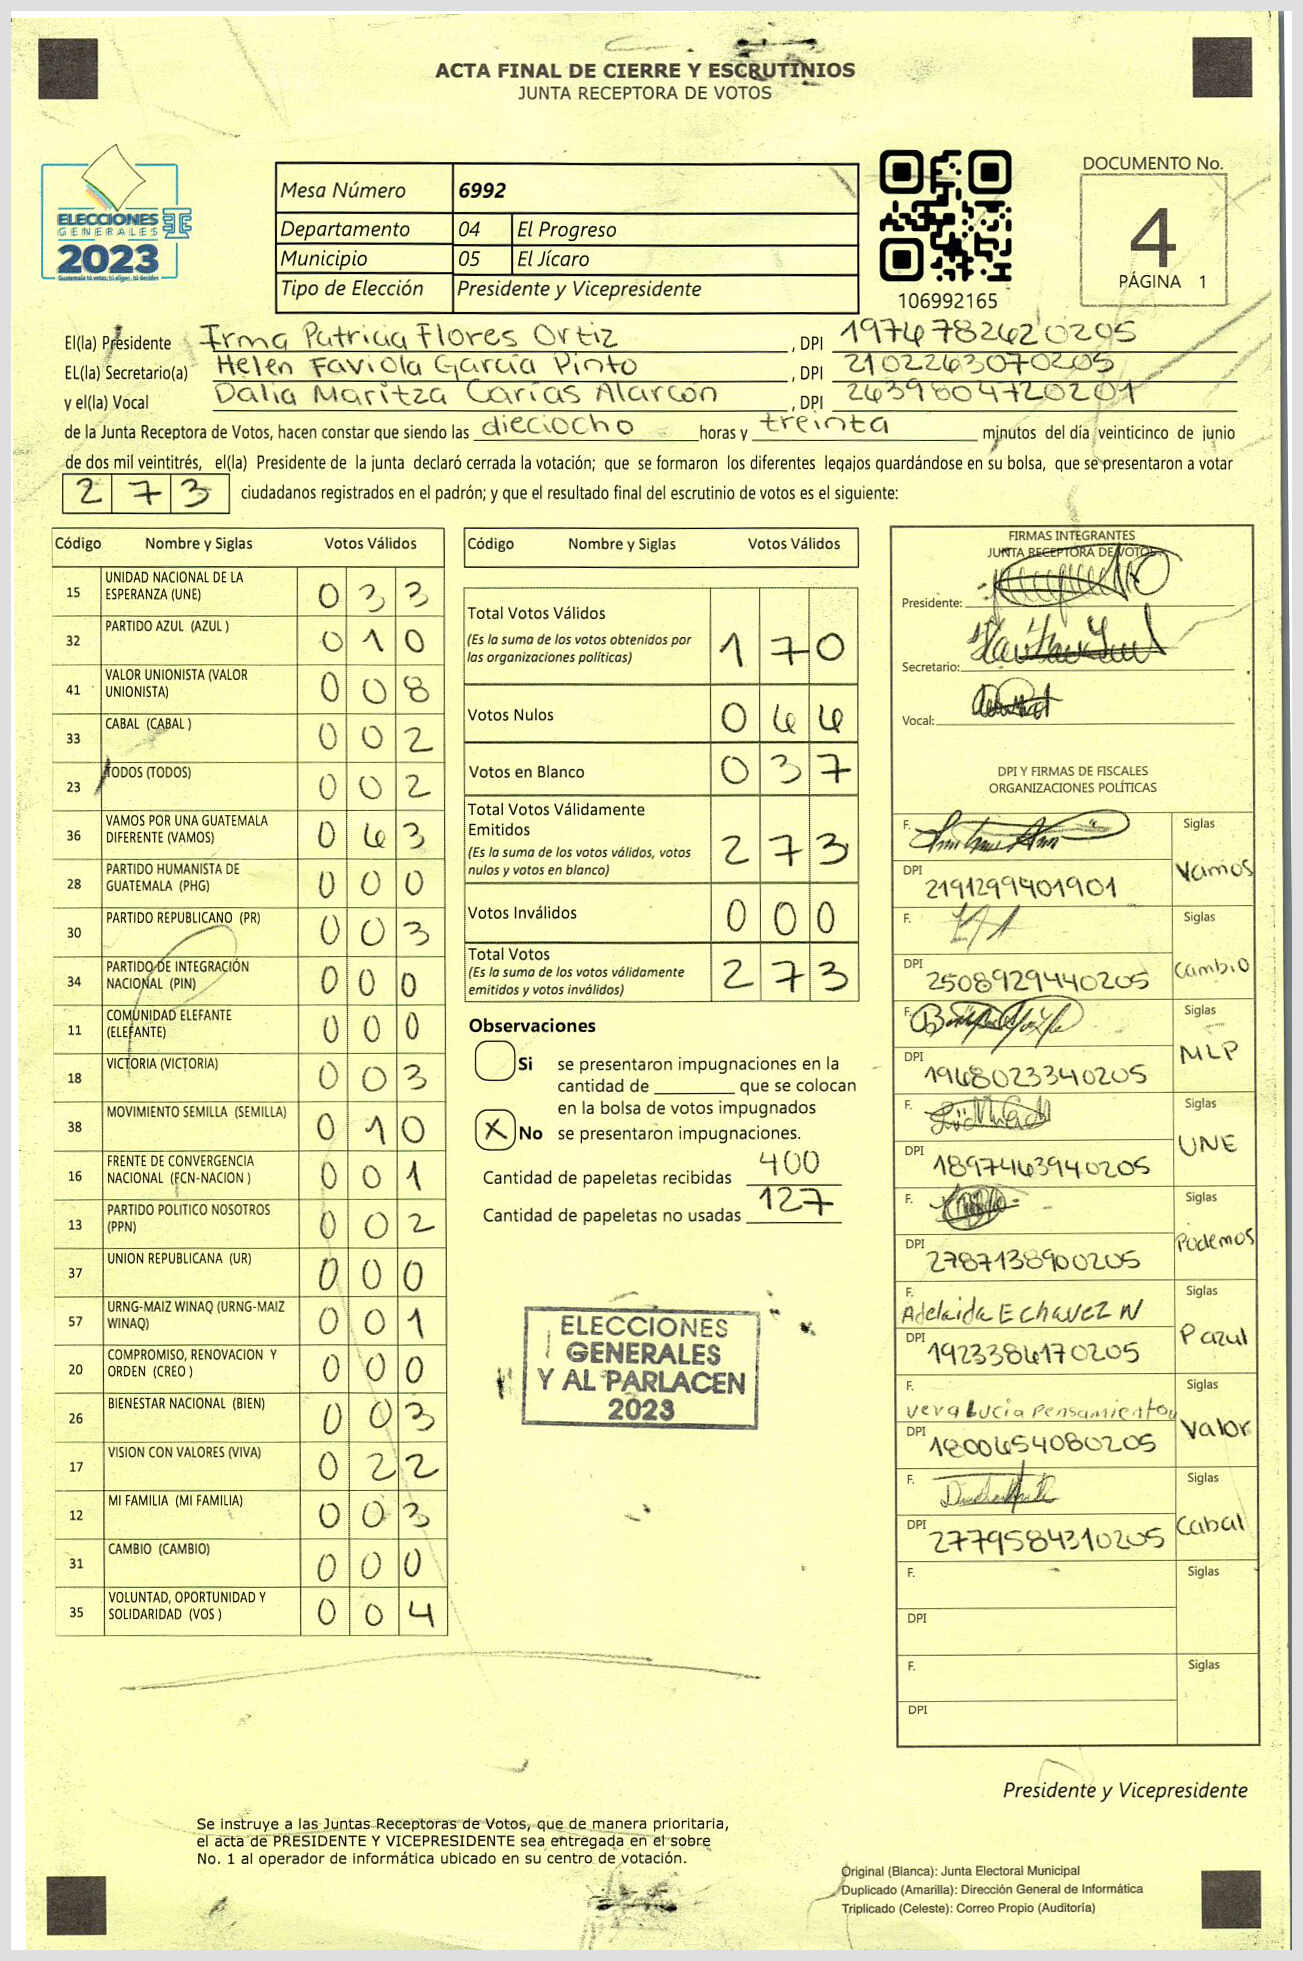 ACTA FINAL DE CIERRE Y ESCRUTINIOS
JUNTA RECEPTORA DE VOTOS
ELECCIONES
GENERALES
2023
Guatemala tú votas, tú eliges, tú decides
Mesa Número 6992
Departamento 04 El Progreso
Municipio 05 El Jícaro
Tipo de Elección Presidente y Vicepresidente
106992165
DOCUMENTO No.
4
PÁGINA 1
El(la) Presidente Irma Patricia Flores Ortiz, DPI 1974782620205
EL(la) Secretario(a) Helen Faviola García Pinto, DPI 2102263070205
y el(la) Vocal Dalia Maritza Carías Alarcón, DPI 2639804720201
de la Junta Receptora de Votos, hacen constar que siendo las dieciocho horas y treinta minutos del día veinticinco de junio
de dos mil veintitrés, el(la) Presidente de la junta declaró cerrada la votación; que se formaron los diferentes legajos guardándose en su bolsa, que se presentaron a votar
273 ciudadanos registrados en el padrón; y que el resultado final del escrutinio de votos es el siguiente:
Código Nombre y Siglas Votos Válidos
15 UNIDAD NACIONAL DE LA ESPERANZA (UNE) 033
32 PARTIDO AZUL (AZUL ) 010
41 VALOR UNIONISTA (VALOR UNIONISTA) 008
33 CABAL (CABAL ) 002
23 TODOS (TODOS) 002
36 VAMOS POR UNA GUATEMALA DIFERENTE (VAMOS) 063
28 PARTIDO HUMANISTA DE GUATEMALA (PHG) 000
30 PARTIDO REPUBLICANO (PR) 003
34 PARTIDO DE INTEGRACIÓN NACIONAL (PIN) 000
11 COMUNIDAD ELEFANTE (ELEFANTE) 000
18 VICTORIA (VICTORIA) 003
38 MOVIMIENTO SEMILLA (SEMILLA) 010
16 FRENTE DE CONVERGENCIA NACIONAL (FCN-NACION ) 001
13 PARTIDO POLITICO NOSOTROS (PPN) 002
37 UNION REPUBLICANA (UR) 000
57 URNG-MAIZ WINAQ (URNG-MAIZ WINAQ) 001
20 COMPROMISO, RENOVACION Y ORDEN (CREO ) 000
26 BIENESTAR NACIONAL (BIEN) 003
17 VISION CON VALORES (VIVA) 022
12 MI FAMILIA (MI FAMILIA) 003
31 CAMBIO (CAMBIO) 000
35 VOLUNTAD, OPORTUNIDAD Y SOLIDARIDAD (VOS ) 004
Código Nombre y Siglas Votos Válidos
Total Votos Válidos 170
(Es la suma de los votos obtenidos por
las organizaciones políticas)
Votos Nulos 066
Votos en Blanco 037
Total Votos Válidamente
Emitidos 273
(Es la suma de los votos válidos, votos
nulos y votos en blanco)
Votos Inválidos 000
Total Votos 273
(Es la suma de los votos válidamente
emitidos y votos inválidos)
Observaciones
Si se presentaron impugnaciones en la
cantidad de ________ que se colocan
en la bolsa de votos impugnados
X No se presentaron impugnaciones.
Cantidad de papeletas recibidas 400
Cantidad de papeletas no usadas 127
ELECCIONES
GENERALES
Y AL PARLACEN
2023
FIRMAS INTEGRANTES
JUNTA RECEPTORA DE VOTOS
Presidente:
Secretario:
Vocal:
DPI Y FIRMAS DE FISCALES
ORGANIZACIONES POLÍTICAS
F. Siglas
DPI 2191299401901 Vamos
F. Siglas
DPI 2508929440205 Cambio
F. Siglas
DPI 1968023340205 MLP
F. Siglas
DPI 1897463940205 UNE
F. Siglas
DPI 2787138900205 Podemos
F. Adelaida E Chavez N Siglas
DPI 1923386170205 P azul
F. Vera Lucia Pensamiento Siglas
DPI 1800654080205 Valor
F. Siglas
DPI 2779584310205 Cabal
F. Siglas
DPI
F. Siglas
DPI
Presidente y Vicepresidente
Se instruye a las Juntas Receptoras de Votos, que de manera prioritaria,
el acta de PRESIDENTE Y VICEPRESIDENTE sea entregada en el sobre
No. 1 al operador de informática ubicado en su centro de votación.
Original (Blanca): Junta Electoral Municipal
Duplicado (Amarilla): Dirección General de Informática
Triplicado (Celeste): Correo Propio (Auditoría)